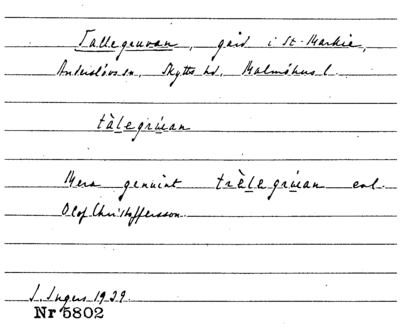 Tallegruvan, gård i St. Markie,
Anderslövs sn, Skytts hd, Malmöhus l.
tàlegrúean
Mera genuint trèlegrúean enl.
Olof Christoffersson.
J. Ingers 1939
Nr 5802